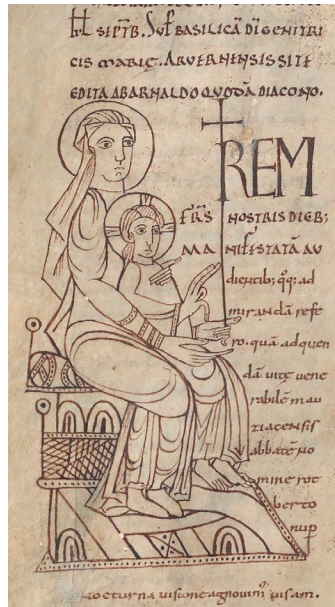 SIPTB. SUP BASILICA DI GENITRI
CIS MARIE. ARVERNENSIS SITE
EDITA AB ARNALDO QUODA DIACONO.
REM
FRS NOSTRIS DIEB;
MANIFESTATĀ AU
dientib; qq; ad
mirandā refe
ro. quā ad quen
dā vitę vene
rabilē mau
ziacensis
abbatē no
mine rot
berto
nup
nocturna visione agnovim, visam.